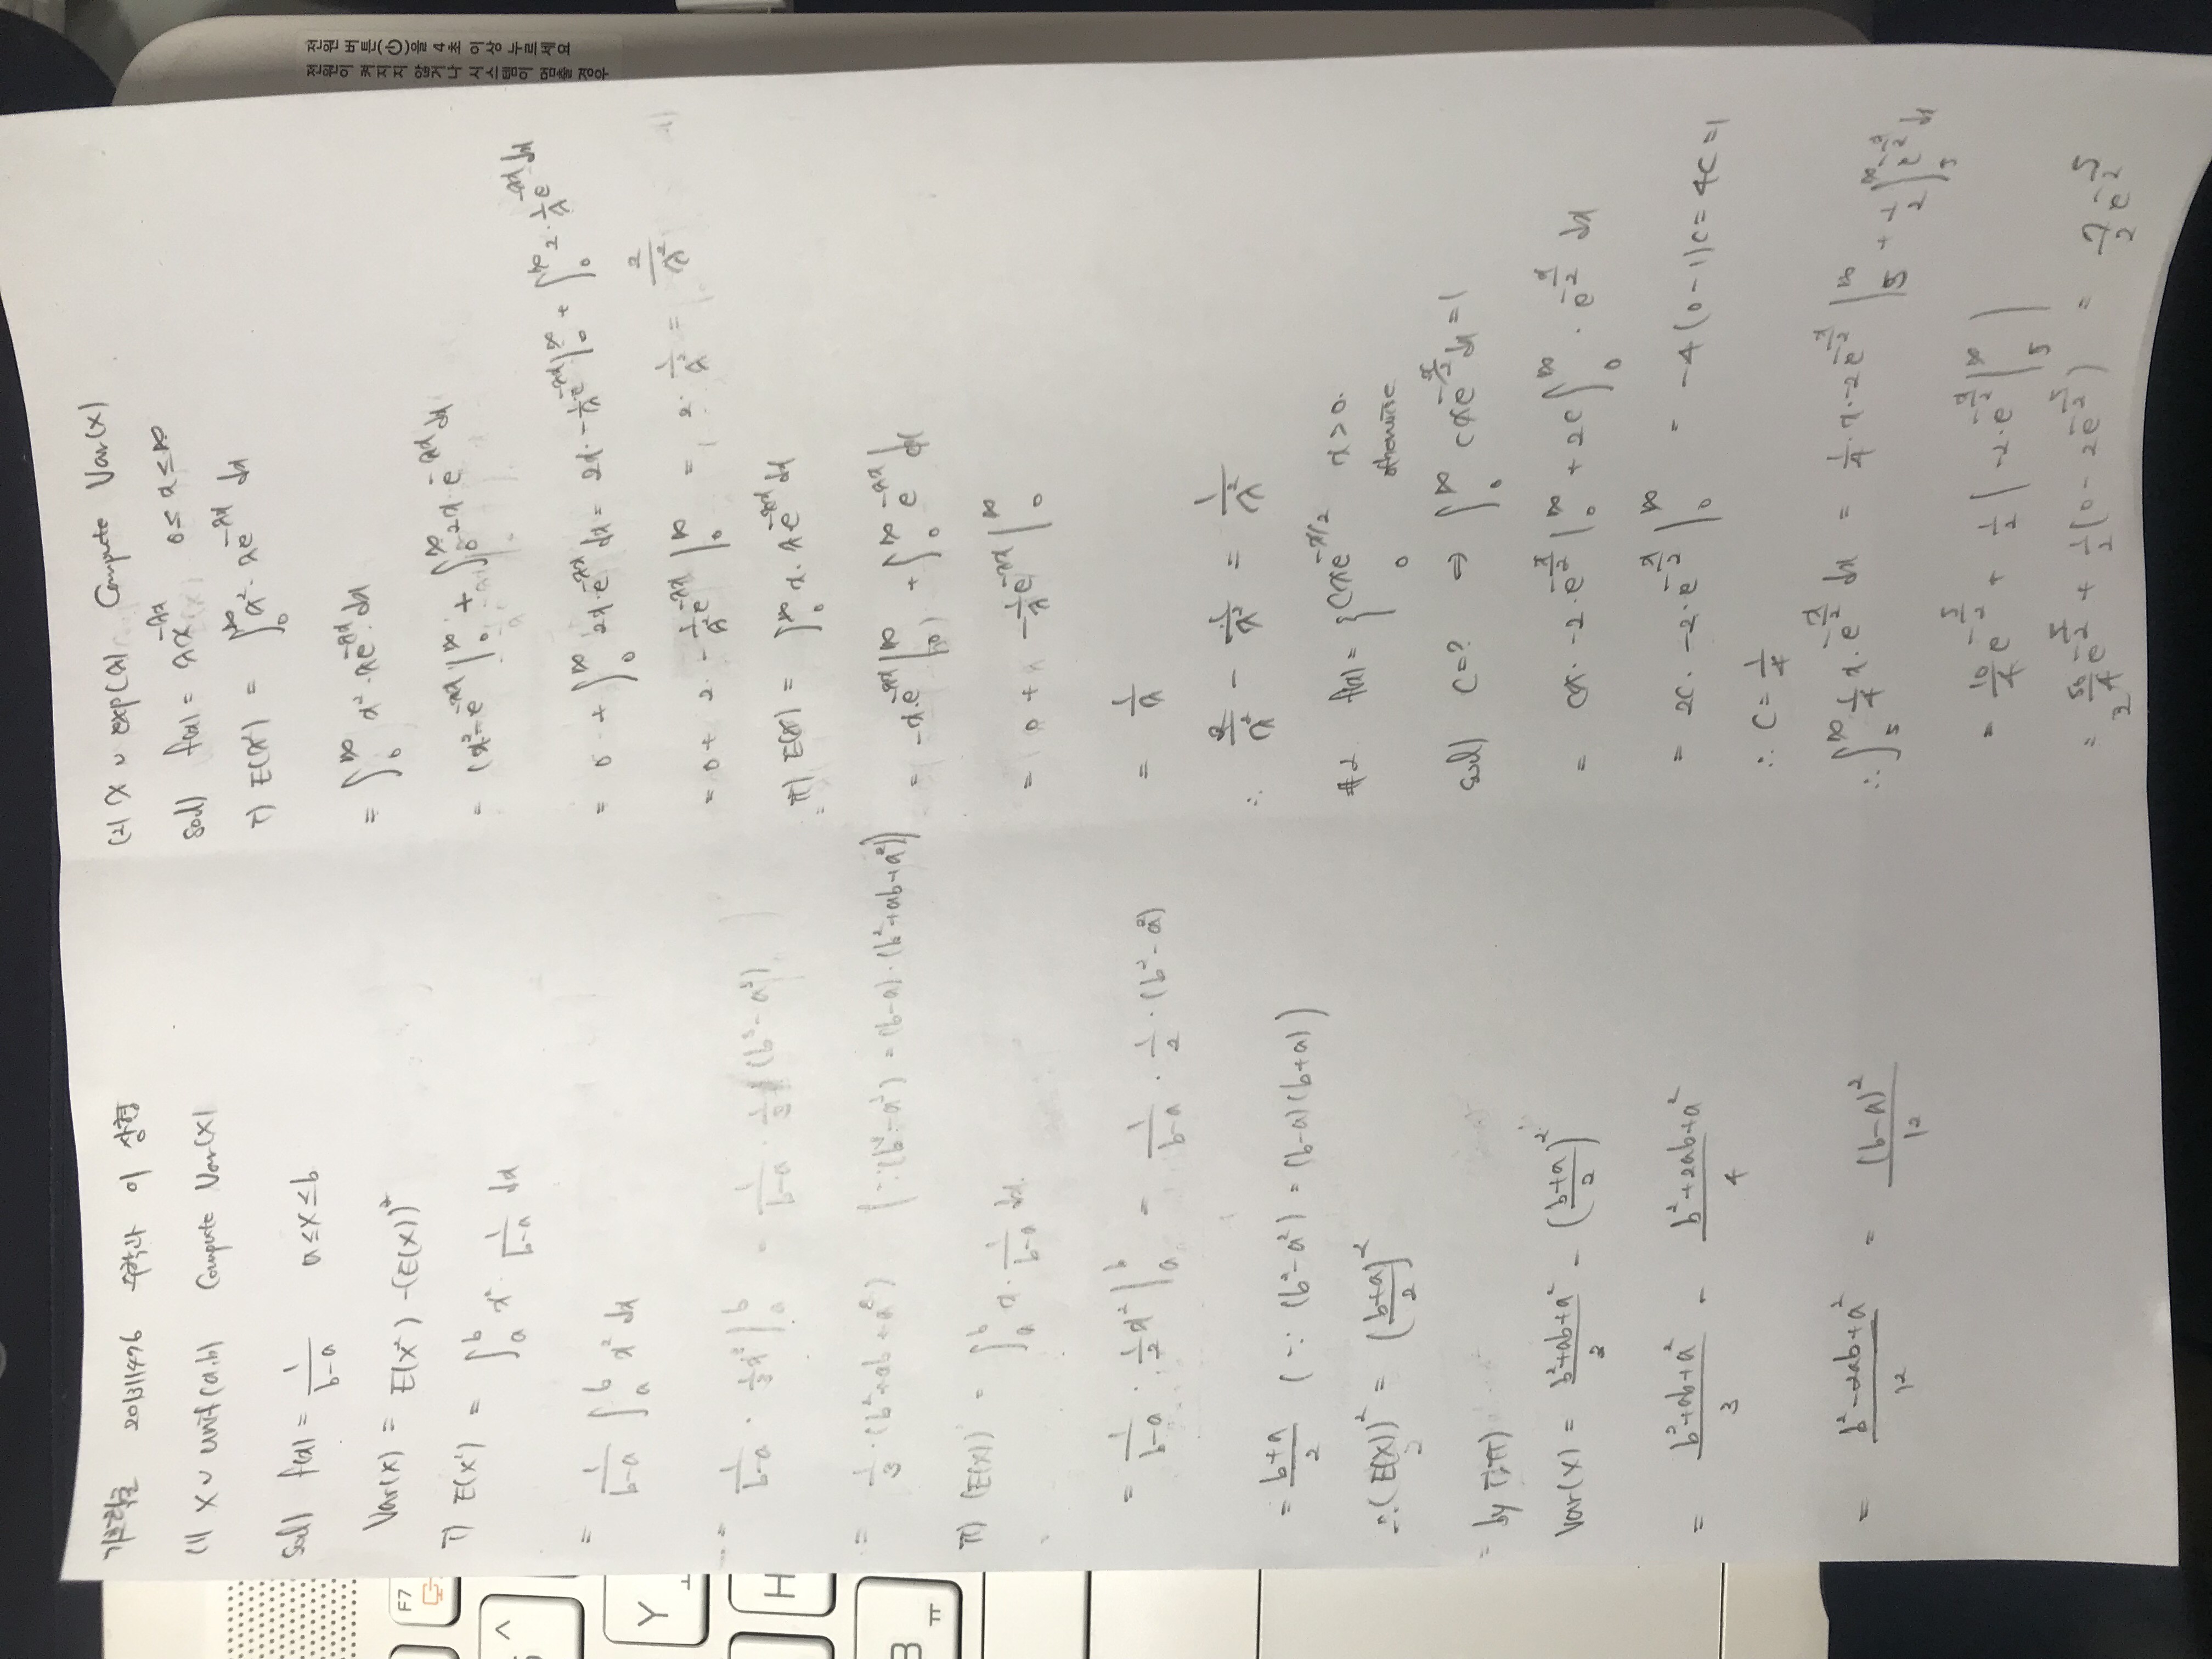 기초확률 201311476 수학과 이상형
(1) X ∪ unif(a,b) Compute Var(X)
Sol) f(x) = 1/(b-a) a≤x≤b
Var(X) = E(X²) - (E(X))²
i) E(X²) = ∫_a^b x² · 1/(b-a) dx
= 1/(b-a) ∫_a^b x² dx
= 1/(b-a) · 1/3 x³ |_a^b = 1/(b-a) · 1/3 (b³-a³)
= 1/3 · (b²+ab+a²) (∵ (b³-a³) = (b-a)·(b²+ab+a²))
ii) (E(X)) = ∫_a^b x · 1/(b-a) dx
= 1/(b-a) · 1/2 x² |_a^b = 1/(b-a) · 1/2 · (b²-a²)
= (b+a)/2 (∵ (b²-a²) = (b-a)(b+a))
∴ (E(X))² = ((b+a)/2)²
by i, ii)
Var(X) = (b²+ab+a²)/3 - ((b+a)/2)²
= (b²+ab+a²)/3 - (b²+2ab+a²)/4
= (b²-2ab+a²)/12 = (b-a)²/12
(2) X ∪ exp(λ) Compute Var(X)
Sol) f(x) = λx^{-λx} 0≤x≤∞
i) E(X²) = ∫_0^∞ x² · λe^{-λx} dx
= ∫_0^∞ x² · λe^{-λx} dx
= (x² · -e^{-λx} |_0^∞ + ∫_0^∞ 2x · e^{-λx} dx
= 0 + ∫_0^∞ 2x · e^{-λx} dx = 2x · -1/λ e^{-λx} |_0^∞ + ∫_0^∞ 2 · 1/λ e^{-λx} dx
= 0 + 2 · -1/λ² e^{-λx} |_0^∞ = 2 · 1/λ² = 2/λ²
ii) E(X) = ∫_0^∞ x · λe^{-λx} dx
= -x · e^{-λx} |_0^∞ + ∫_0^∞ e^{-λx} dx
= 0 + -1/λ e^{-λx} |_0^∞
= 1/λ
∴ 2/λ² - 1/λ² = 1/λ²
#2. f(x) = { Cxe^{-x/2} x>0.
0 otherwise
Sol) C=? ⇒ ∫_0^∞ cxe^{-x/2} dx = 1
= cx · -2 · e^{-x/2} |_0^∞ + 2c ∫_0^∞ · e^{-x/2} dx
= 2c · -2 · e^{-x/2} |_0^∞ = -4(0-1)c = 4c = 1
∴ C = 1/4
∴ ∫_5^∞ 1/4 x · e^{-x/2} dx = 1/4 · x · -2e^{-x/2} |_5^∞ + 1/2 ∫_5^∞ e^{-x/2} dx
= 10/4 e^{-5/2} + 1/2 ( -2 · e^{-x/2} |_5^∞ )
= e^{-5/2} + 1/2 (0 - 2e^{-5/2}) = 7/2 e^{-5/2}
전원 버튼(⏻)을 4초 이상 누르세요
전원이 켜지지 않거나 시스템이 멈출 경우
F7
^
Y
H
B
ㅠ